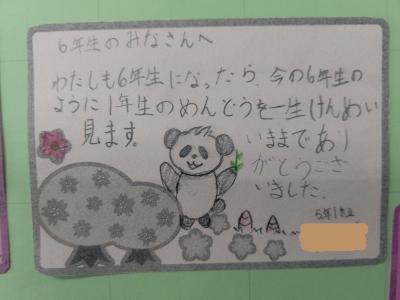 6年生のみなさんへ
わたしも6年生になったら、今の6年生の
ように1年生のめんどうを一生けんめい
見ます。
いままであり
がとうござ
いました。
5年1組